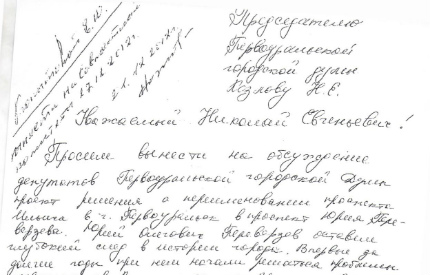 Председателю
Первоуральской
городской думы
Козлову Н.Е.
вынести на
17.12.2012г.
21.12.2012г.
Уважаемый Николай Евгеньевич!
Просим вынести на обсуждение
депутатов Первоуральской городской Думы
проект решения о переименовании проспекта
Ильича в г. Первоуральск в проспект Юрия Пере-
верзева. Юрий Олегович Переверзев оставил
глубокий след в истории города. Впервые за
долгие годы при нем начали решаться проблемы